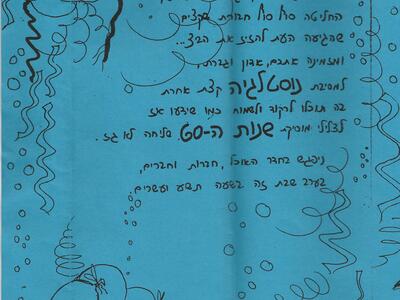 החליטה סוף סוף חבורת בקצים,
שהגיעה העת להזיז את הבצ'...
ומזמינה אתכם, אדון וגברת,
למסיבת נוסטלגיה קצת אחרת
בה תוכלו לרקוד ולשמוח כמו שידעו אז
לצלילי מוסיקת שנות ה-60. סליחה לא גז.
ניפגש בחדר האוכל, חברות וחברים,
בערב שבת זה בשעה תשע ועשרים.